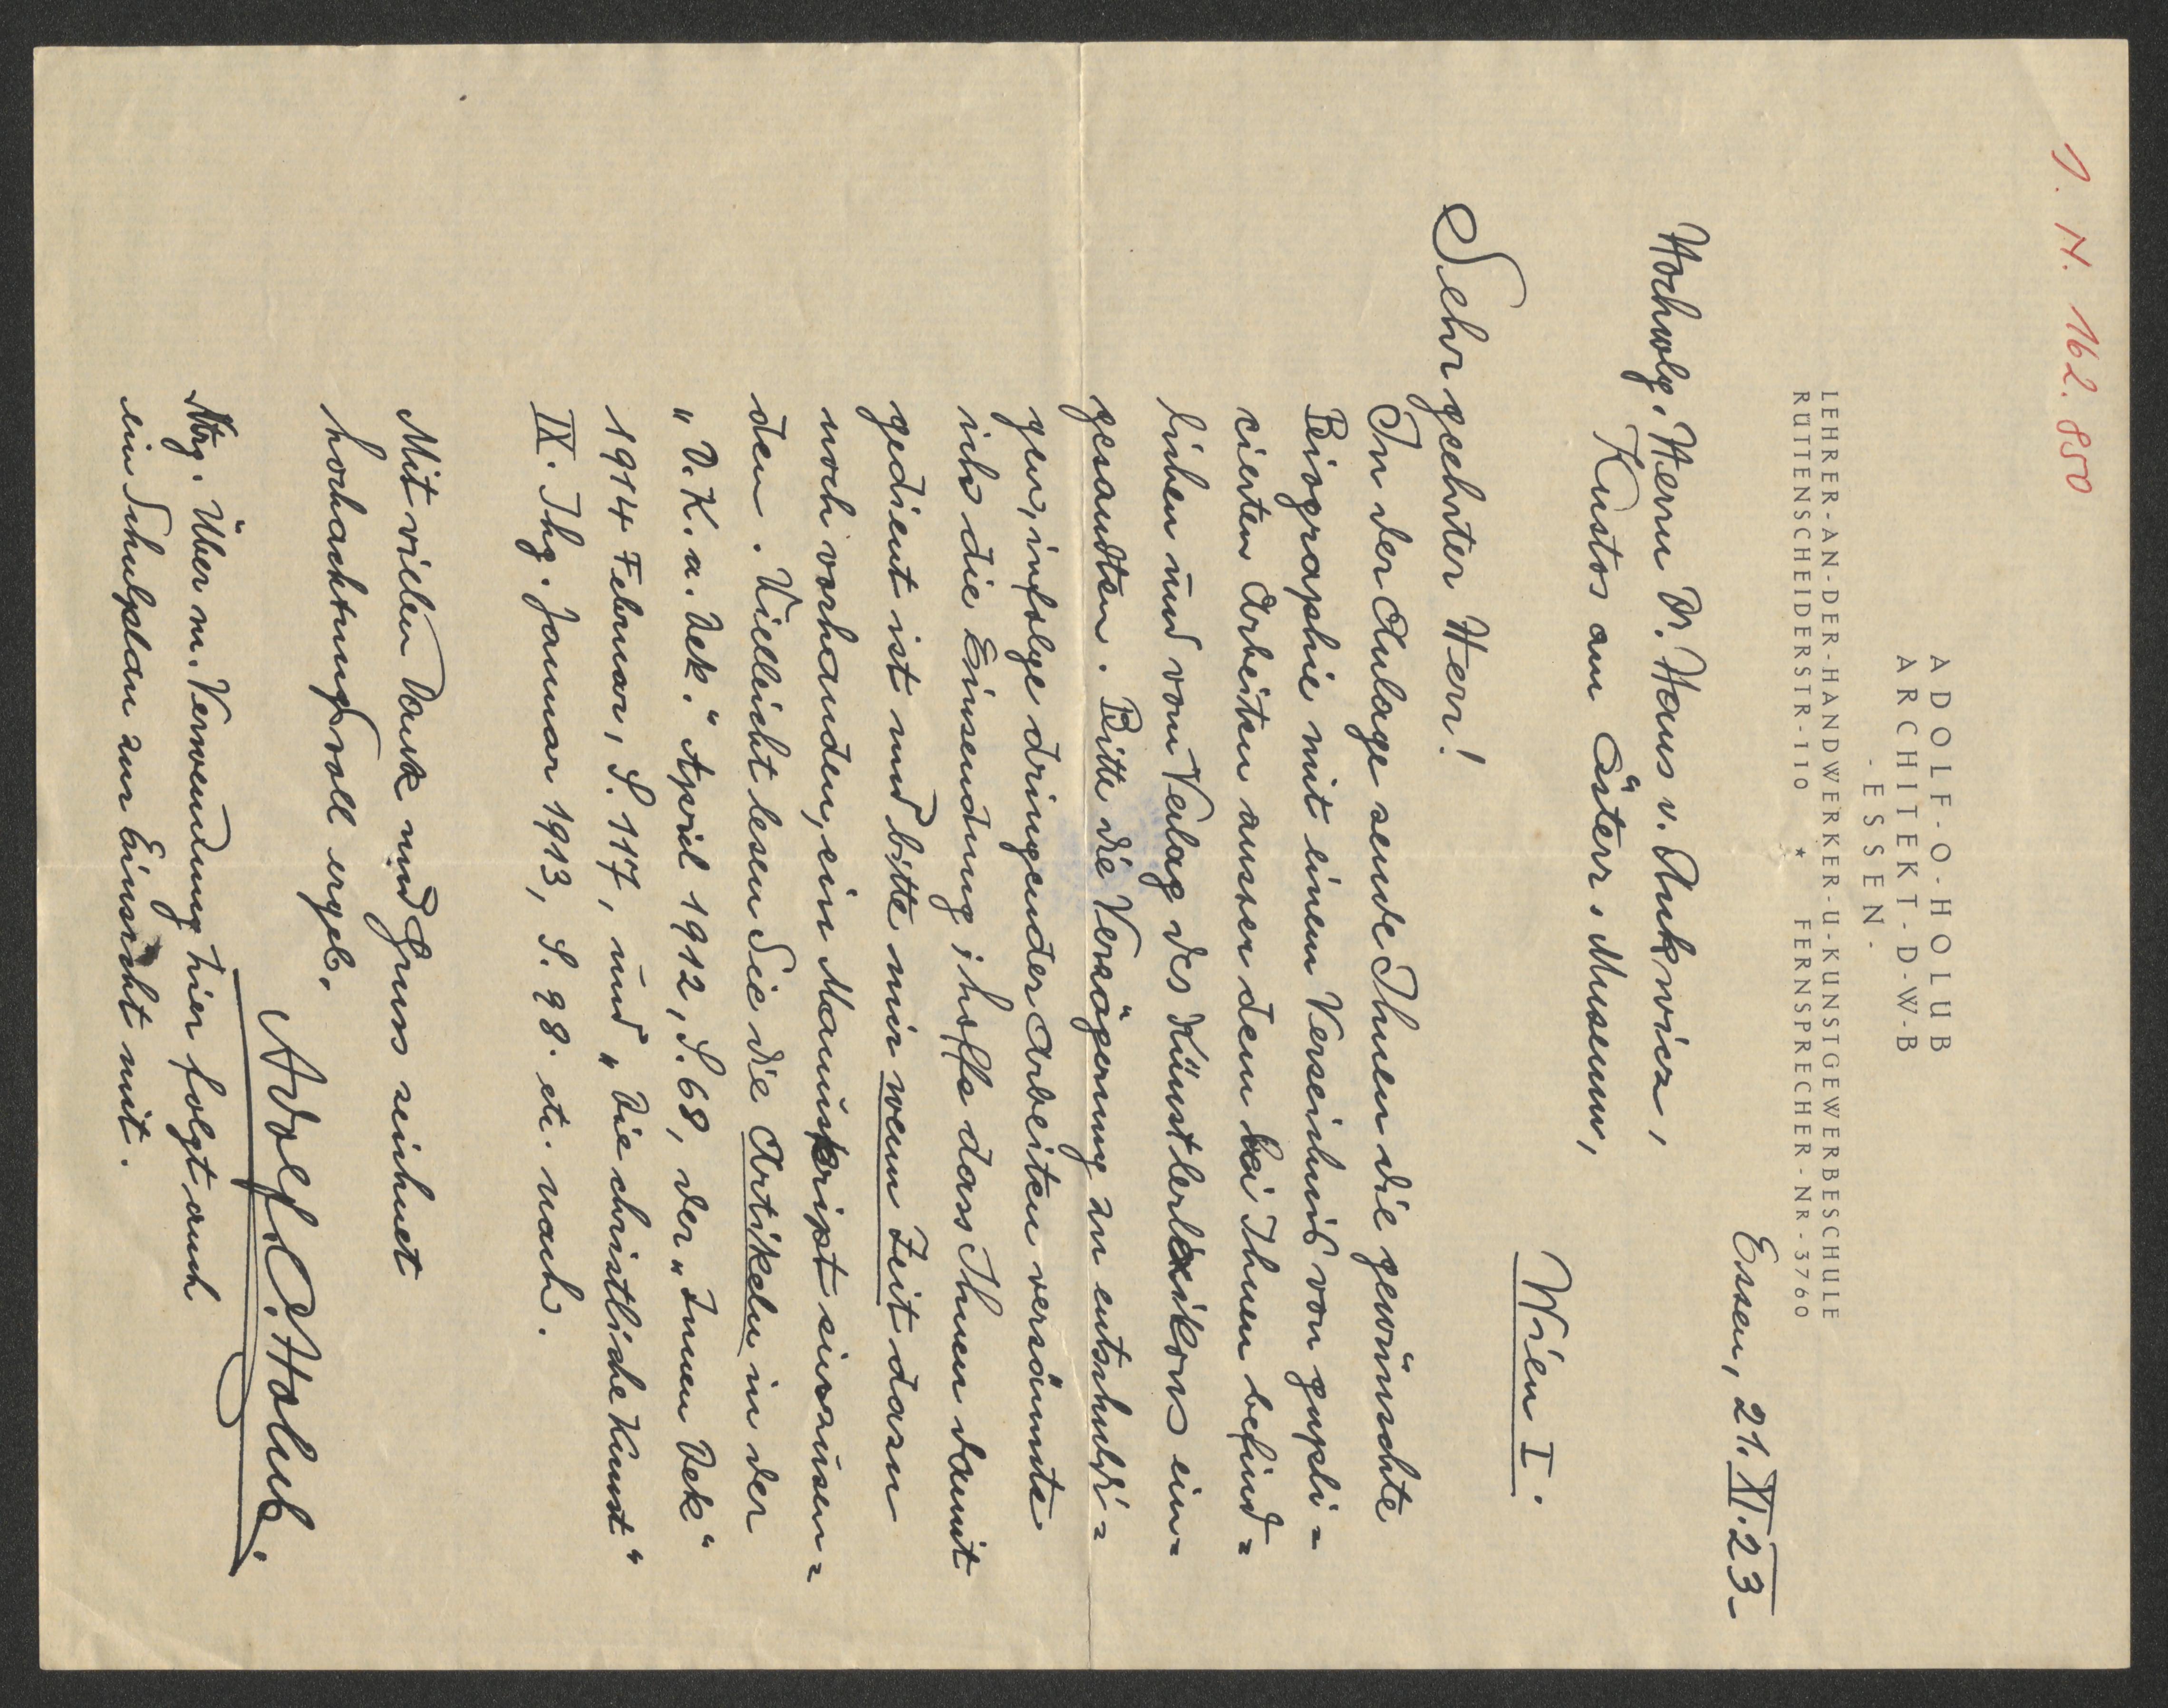 J. N. 162.850
ADOLF-O-HOLUB
ARCHITEKT-D-W-B
-ESSEN-
LEHRER-AN-DER-HANDWERKER-U-KUNSTGEWERBESCHULE
RÜTTENSCHEIDERSTR-110 * FERNSPRECHER-NR-3760
Essen, 21.XI.23.
Hochwolg. Herrn Dr. Hans v. Ankwicz,
Kustos am Österr. Museum,
Wien I.
Sehr geehrter Herr!
In der Anlage sende Ihnen die gewünschte
Biographie mit einem Verzeichnis von gupli=
cierten Arbeiten ausser dem bei Ihnen befind=
lichen und vom Verlag des Künstlerlexikons ein=
gesandten. Bitte die Verzögerung zu entschuldi=
gen, infolge dringender Arbeiten versäumte
ich die Einsendung; hoffe dass Ihnen damit
gedient ist und bitte mir wenn Zeit dazu
noch vorhanden, ein Manuskript einzusen=
den. Vielleicht lesen Sie die Artikeln in der
"D. K. u. Dek." April 1912, S. 68, der "Innen Dek"
1914 Februar, S. 117, und "Die christliche Kunst"
IX. Jhg. Januar 1913, S. 98. etc. nach.
Mit vielen Dank und Gruss zeichnet
hochachtungsvoll ergeb.
Adolf O. Holub.
Ntrg. Über m. Verwendung hier folgt auch
ein Schulplan zur Einsicht mit.